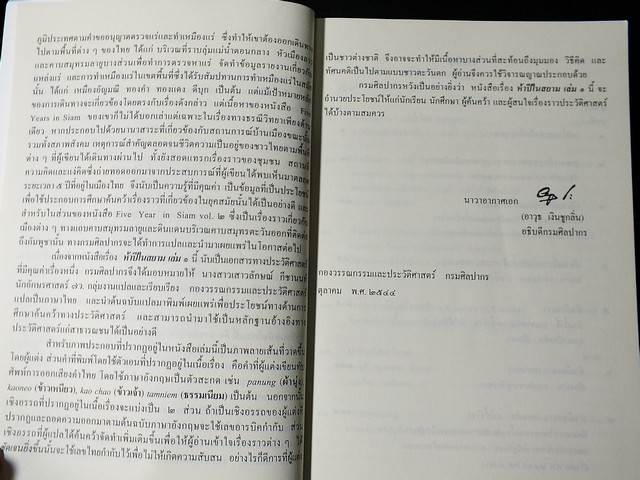 ภูมิประเทศตามคำขออนุญาตตรวจแร่และทำเหมืองแร่ ซึ่งทำให้เขาต้องออกเดินทาง
ไปตามพื้นที่ต่าง ๆ ของไทย ได้แก่ บริเวณที่ราบลุ่มแม่น้ำตอนกลาง หัวเมือง
และคาบสมุทรมลายูบางส่วนเพื่อทำการตรวจหาแร่ จัดทำข้อมูลรายงานเกี่ยวกับ
แหล่งแร่ และการทำเหมืองแร่ในเขตพื้นที่ซึ่งได้รับสัมปทานการทำเหมืองแร่ในสมัย
นั้น ได้แก่ เหมืองอัญมณี ทองคำ ทองแดง ดีบุก เป็นต้น แต่แม้เป้าหมายหลัก
ของการเดินทางจะเกี่ยวข้องโดยตรงกับเรื่องดังกล่าว แต่เนื้อหาของหนังสือ Five
Years in Siam ของเขาก็ไม่ได้บอกเล่าแต่เฉพาะในเรื่องทางธรณีวิทยาเพียงด้าน
เดียว หากประกอบไปด้วยนานาสาระที่เกี่ยวข้องกับสถานการณ์บ้านเมืองขณะนั้น
รวมทั้งสภาพสังคม เหตุการณ์สำคัญตลอดจนชีวิตความเป็นอยู่ของชาวไทยตามพื้นที่
ต่าง ๆ ที่ผู้เขียนได้เดินทางผ่านไป ทั้งยังสอดแทรกเรื่องราวของชุมชน สถานที่
ความคิดและแง่คิดซึ่งถ่ายทอดออกมาจากประสบการณ์ที่ผู้เขียนได้พบเห็นมาตลอด
ระยะเวลา ๕ ปีที่อยู่ในเมืองไทย จึงนับเป็นความรู้ที่มีคุณค่า เป็นข้อมูลที่เป็นประโยชน์
เพื่อใช้ประกอบการศึกษาค้นคว้าเรื่องราวที่เกี่ยวข้องในยุคสมัยนั้นได้เป็นอย่างดี และ
สำหรับในส่วนของหนังสือ Five Year in Siam vol. ๒ ซึ่งเป็นเรื่องราวเกี่ยวกับ
เมืองต่าง ๆ ทางแถบคาบสมุทรมลายูและดินแดนบริเวณคาบสมุทรตะวันออกที่ติดต่อ
ถึงกัมพูชานั้น ทางกรมศิลปากรจะได้ทำการแปลและนำมาเผยแพร่ในโอกาสต่อไป
เนื่องจากหนังสือเรื่อง ห้าปีในสยาม เล่ม ๑ นี้ นับเป็นเอกสารทางประวัติศาสตร์
ที่มีคุณค่าเรื่องหนึ่ง กรมศิลปากรจึงได้มอบหมายให้ นางสาวเสาวลักษณ์ กีชานนท์
นักอักษรศาสตร์ ๗ว. กลุ่มงานแปลและเรียบเรียง กองวรรณกรรมและประวัติศาสตร์
แปลเป็นภาษาไทย และนำต้นฉบับแปลมาพิมพ์เผยแพร่เพื่อประโยชน์ทางด้านการ
ศึกษาค้นคว้าทางประวัติศาสตร์ และสามารถนำมาใช้เป็นหลักฐานอ้างอิงทาง
ประวัติศาสตร์แก่สาธารณชนได้เป็นอย่างดี
สำหรับภาพประกอบที่ปรากฏอยู่ในหนังสือเล่มนี้เป็นภาพลายเส้นที่วาดขึ้น
โดยผู้แต่ง ส่วนคำที่พิมพ์โดยใช้ตัวเอนที่ปรากฏอยู่ในเนื้อเรื่อง คือคำที่ผู้แต่งเขียนทับ
ศัพท์การออกเสียงคำไทย โดยใช้ภาษาอังกฤษเป็นตัวสะกด เช่น panung (ผ้านุ่ง),
kaoneo (ข้าวเหนียว), kao chao (ข้าวเจ้า) tamniem (ธรรมเนียม) เป็นต้น นอกจากนั้น
เชิงอรรถที่ปรากฏอยู่ในเนื้อเรื่องจะแบ่งเป็น ๒ ส่วน ถ้าเป็นเชิงอรรถของผู้แต่งที่
ปรากฏและถอดความออกมาตามต้นฉบับภาษาอังกฤษจะใช้เลขอารบิคกำกับ ส่วน
เชิงอรรถที่ผู้แปลได้ค้นคว้าจัดทำเพิ่มเติมขึ้นเพื่อให้ผู้อ่านเข้าใจเรื่องราวต่าง ๆ ได้
ชัดเจนยิ่งขึ้นนั้นจะใช้เลขไทยกำกับไว้เพื่อไม่ให้เกิดความสับสน อย่างไรก็ดีการที่ผู้แต่ง
เป็นชาวต่างชาติ จึงอาจจะทำให้มีเนื้อหาบางส่วนที่สะท้อนถึงมุมมอง วิธีคิด และ
ทัศนคติเป็นไปตามแบบชาวตะวันตก ผู้อ่านจึงควรใช้วิจารณญาณประกอบด้วย
กรมศิลปากรหวังเป็นอย่างยิ่งว่า หนังสือเรื่อง ห้าปีในสยาม เล่ม ๑ นี้ จะ
อำนวยประโยชน์ให้แก่นักเรียน นักศึกษา ผู้ค้นคว้า และผู้สนใจเรื่องราวประวัติศาสตร์
ได้บ้างตามสมควร
นาวาอากาศเอก
(อาวุธ เงินชูกลิ่น)
อธิบดีกรมศิลปากร
กองวรรณกรรมและประวัติศาสตร์ กรมศิลปากร
ตุลาคม พ.ศ. ๒๕๔๔